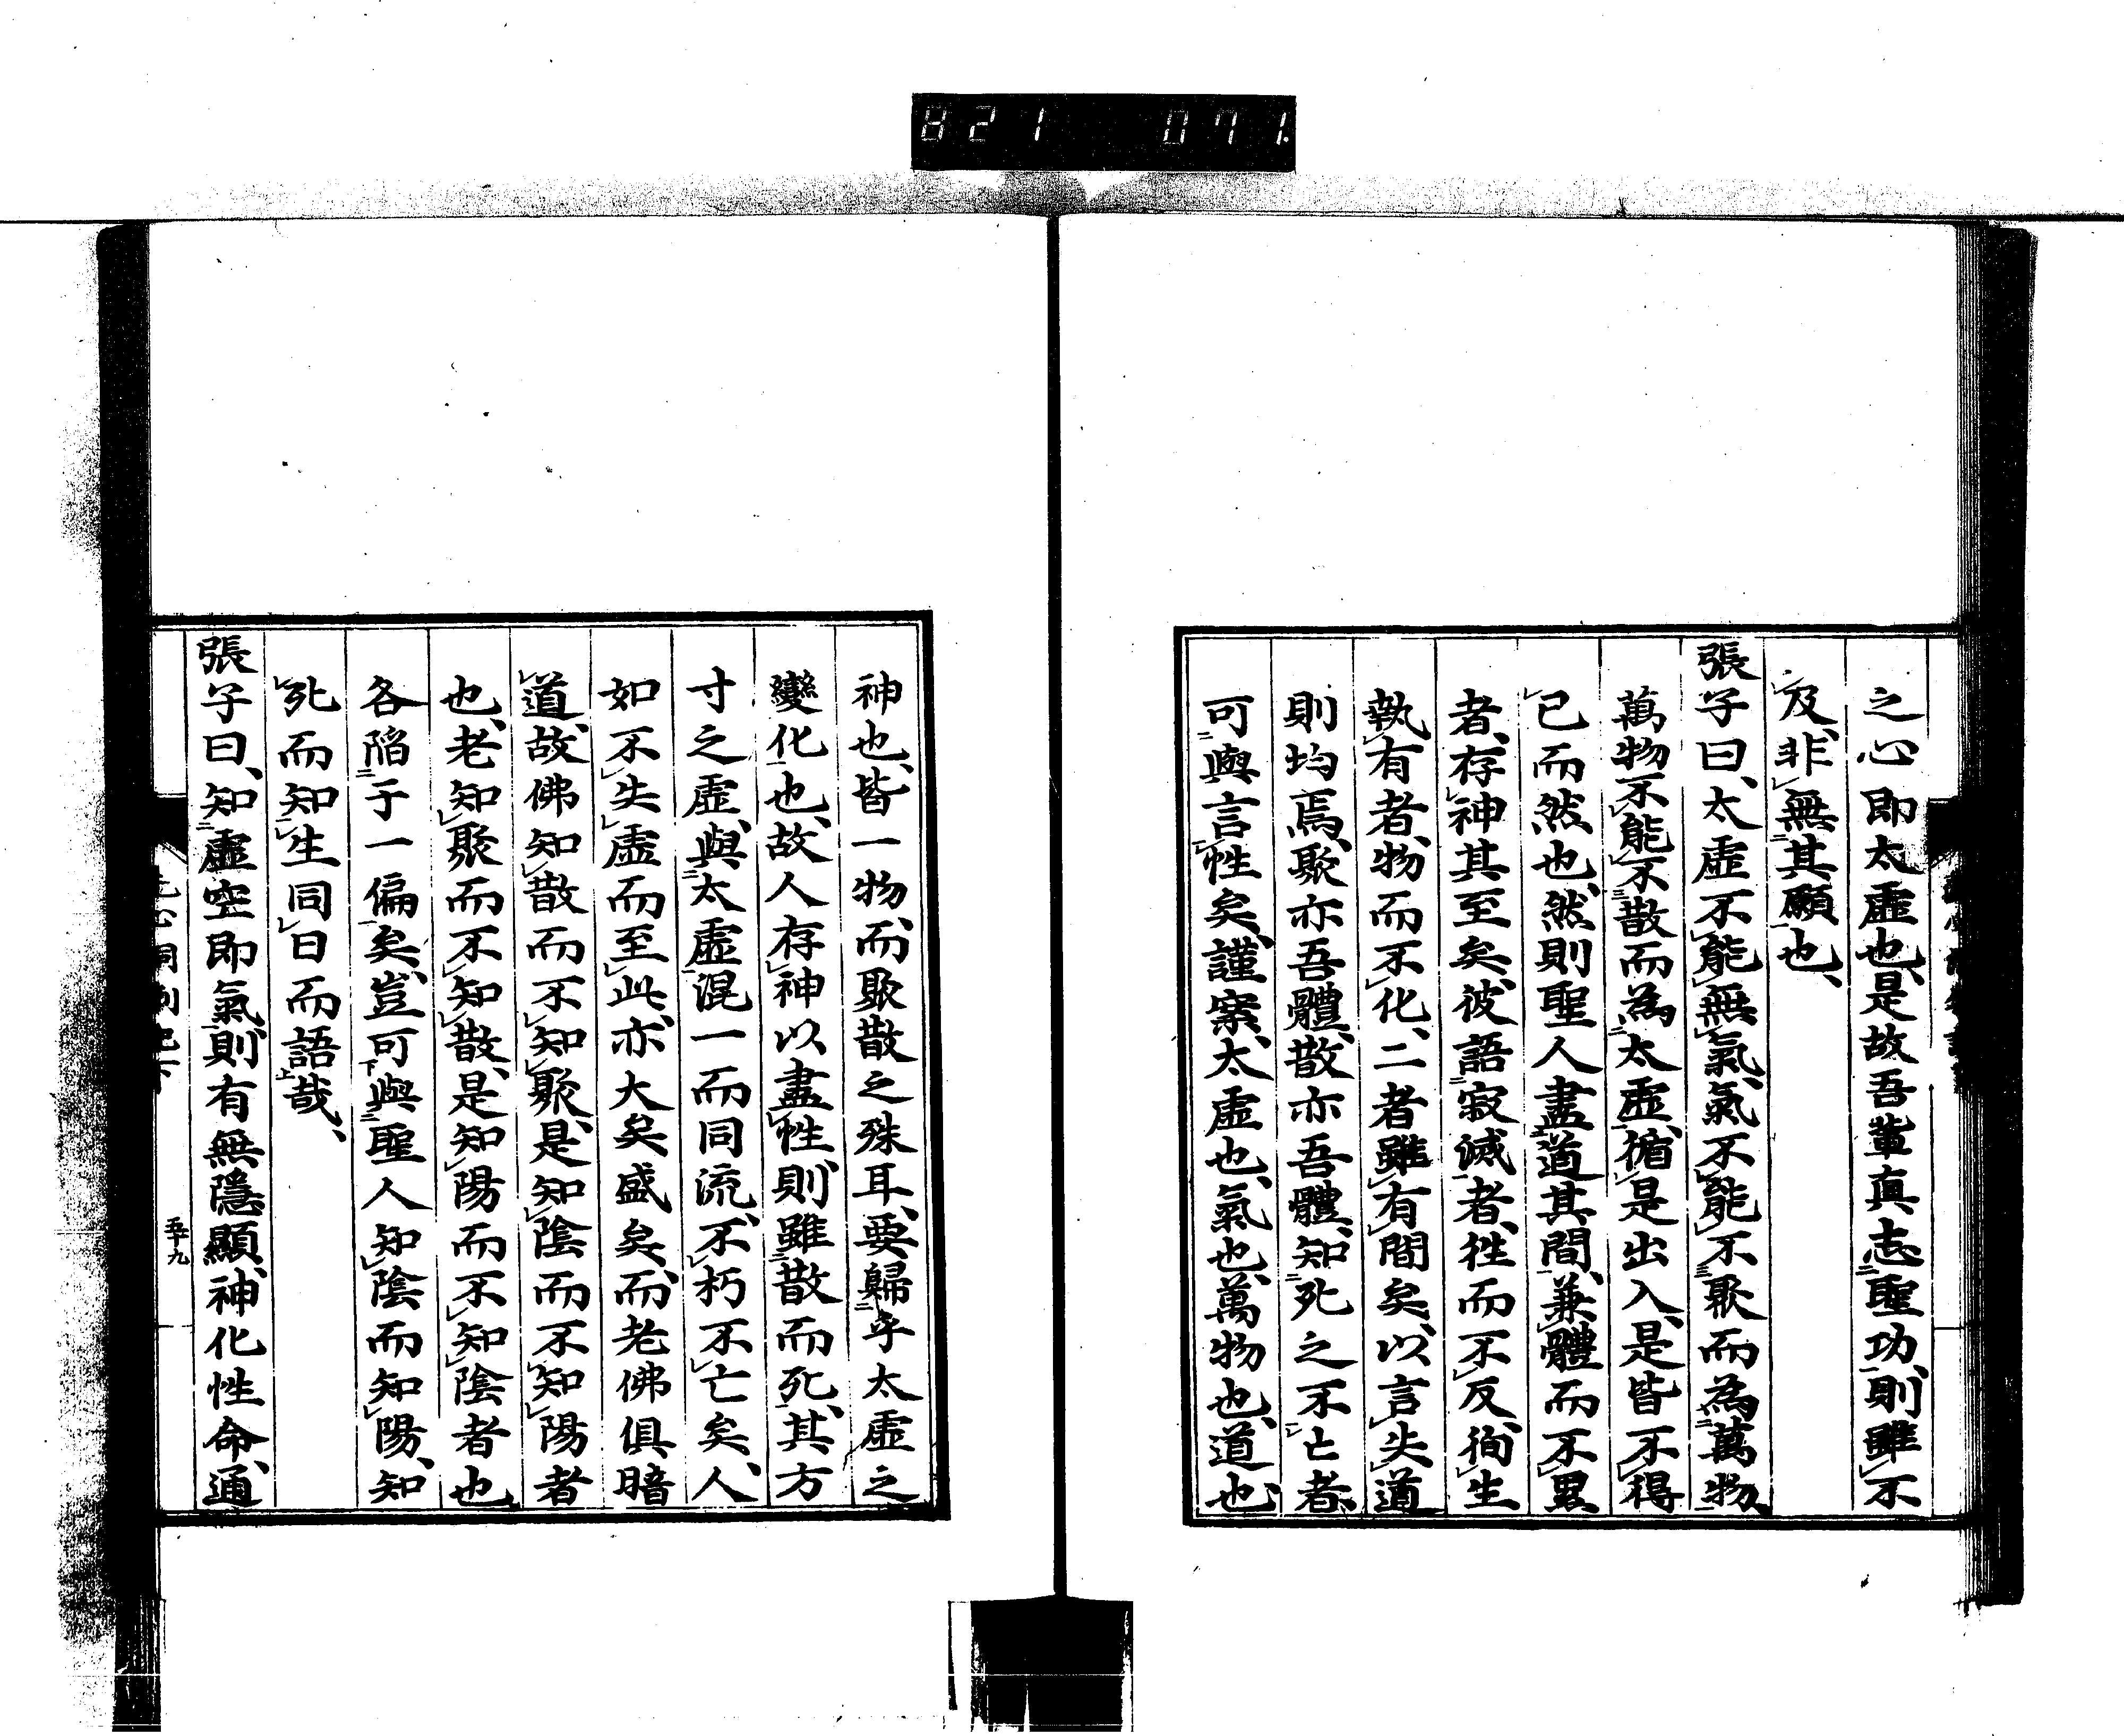 821 071
之心即太虛也、是故吾輩真志聖功、則雖不
及、非無其願也、
張子曰、太虛不能無氣、氣不能不聚而為萬物、
萬物不能不散而為太虛、循是出入、是皆不得
已而然也、然則聖人盡道其間、兼體而不累
者、存神其至矣、彼語寂滅者、往而不反、徇生
執有者、物而不化、二者雖有間矣、以言失道
則均焉、聚亦吾體、散亦吾體、知死之不亡者、
可與言性矣、謹案、太虛也、氣也、萬物也、道也、
神也、皆一物、而聚散之殊耳、要歸乎太虛之
變化也、故人存神以盡性、則雖散而死、其方
寸之虛、與太虛混一而同流、不朽不亡矣、人、
如不失虛而至此、亦大矣盛矣、而老佛俱暗
道、故佛知散而不知聚、是知陰而不知陽者
也、老知聚而不知散、是知陽而不知陰者也
各陷于一偏矣、豈可與聖人知陰而知陽、知
死而知生同日而語哉、
張子曰、知虛空即氣、則有無隱顯、神化性命、通
五十九